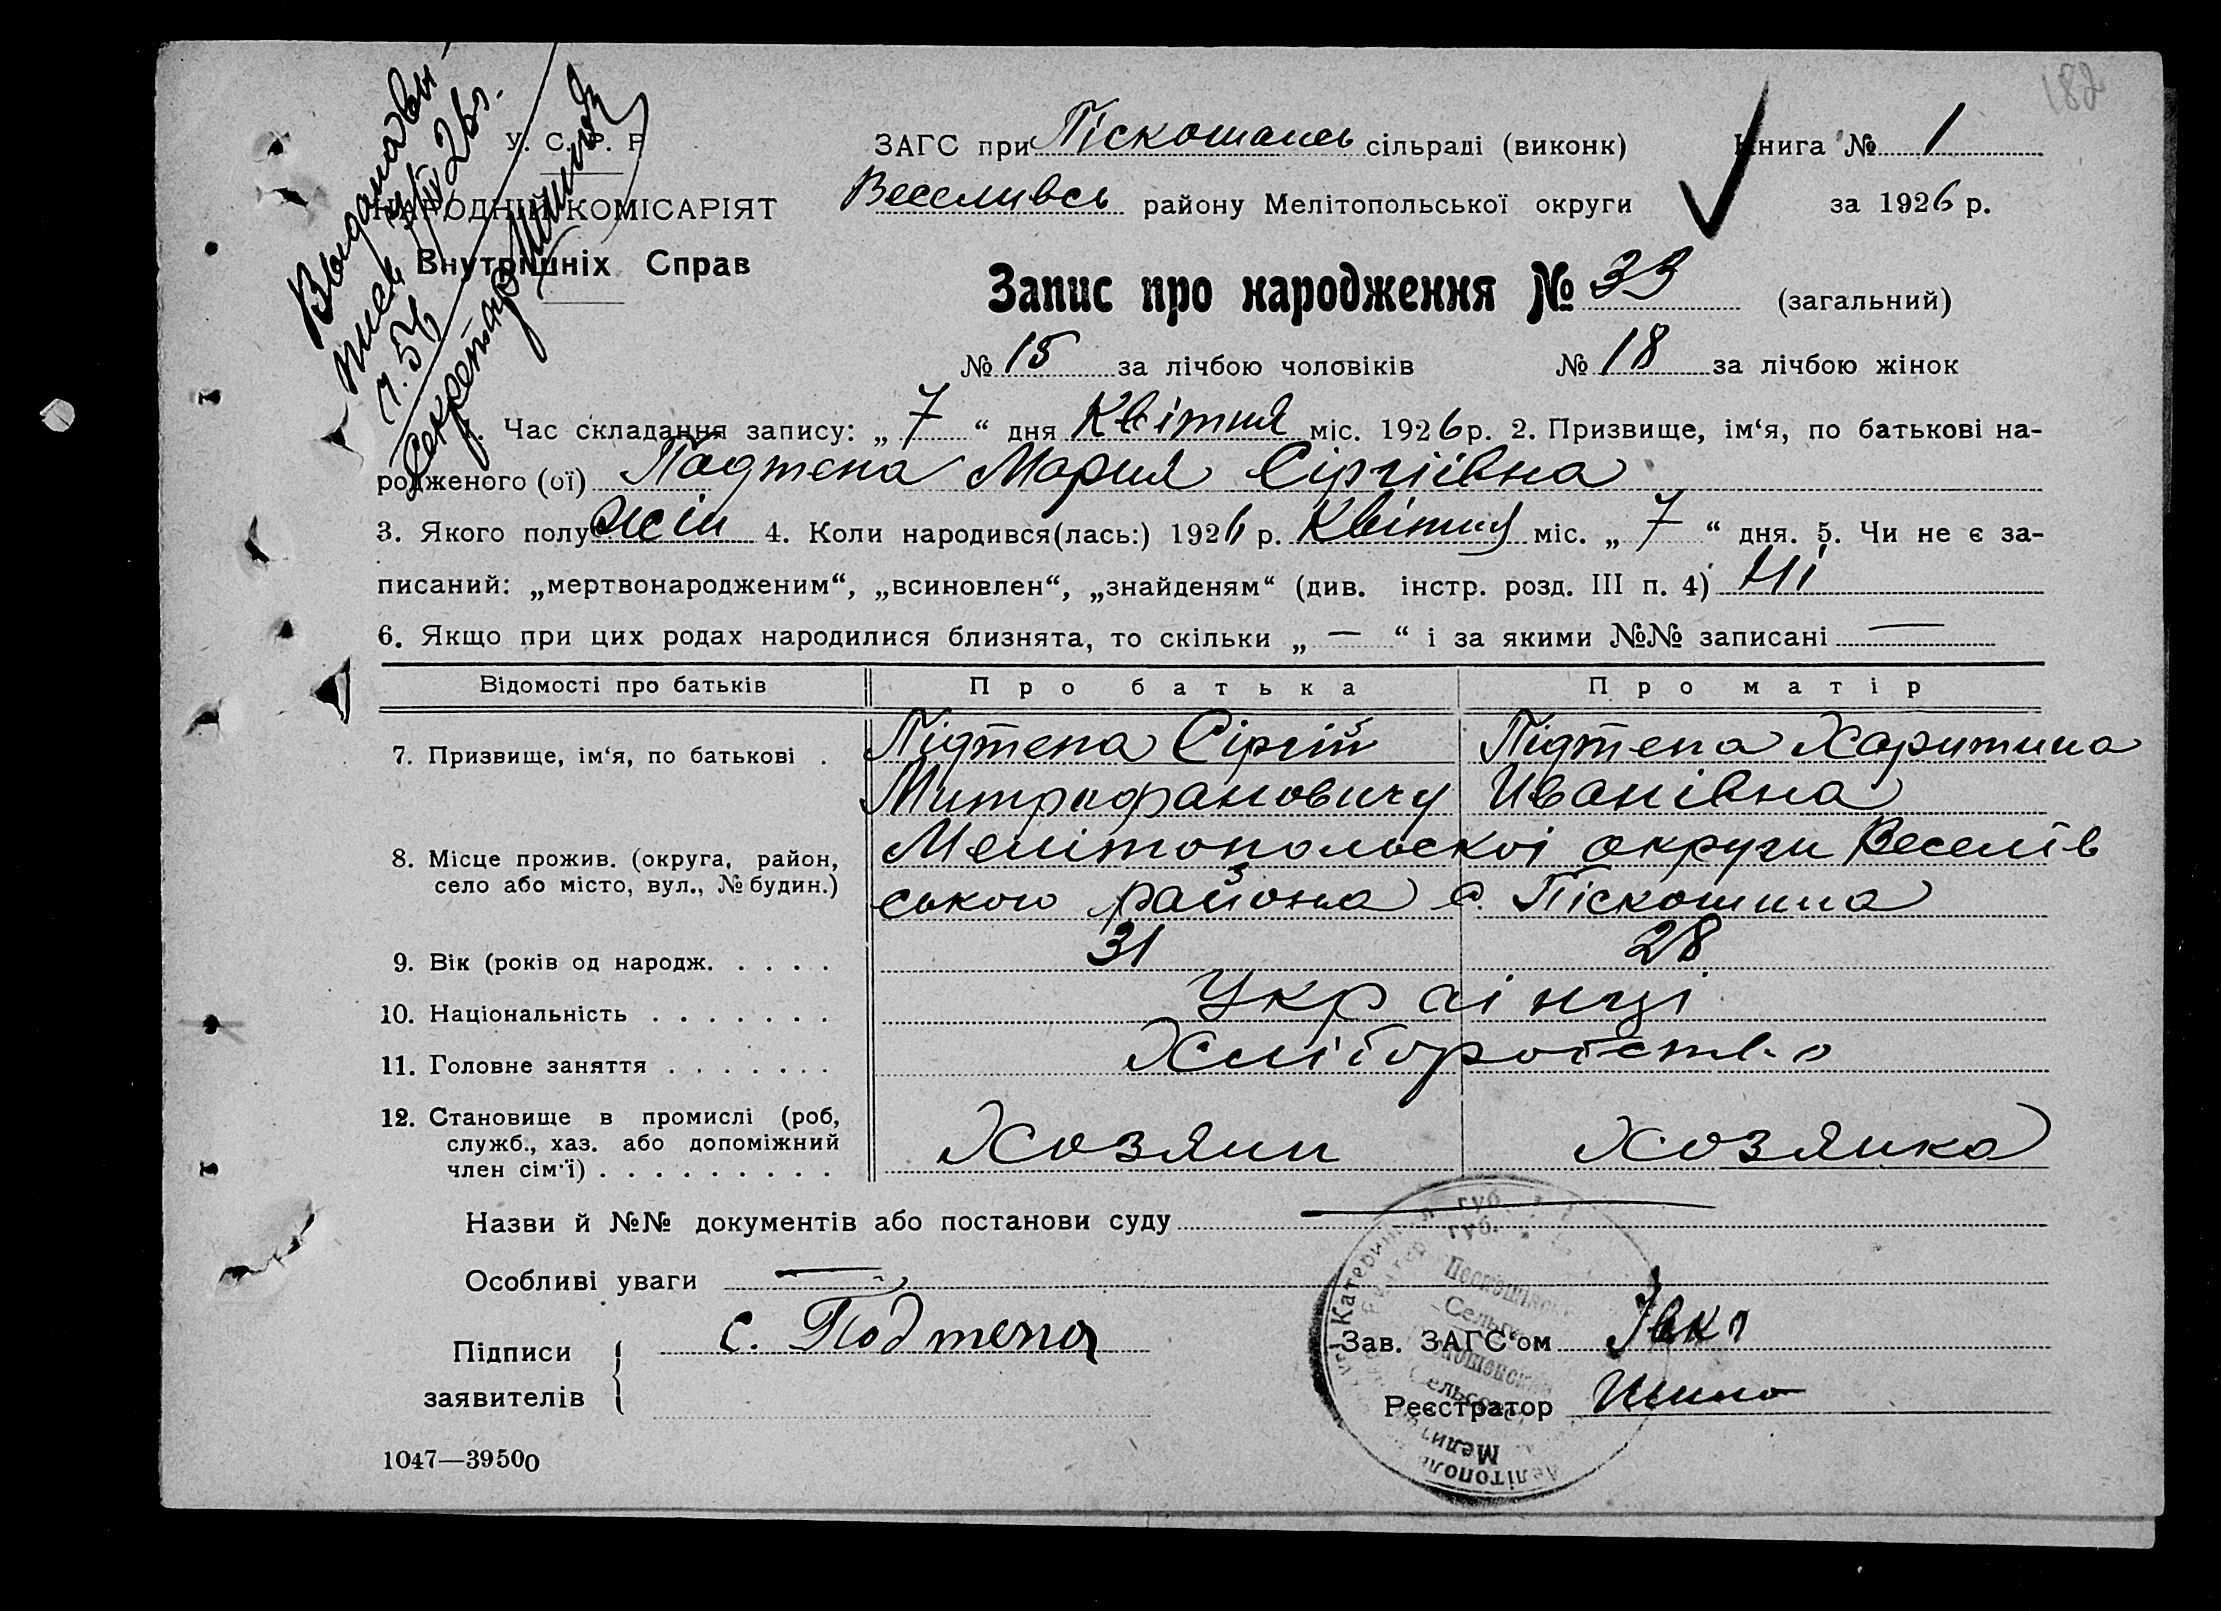 182
У. С. Р. Р.
НАРОДНІЙ КОМІСАРІЯТ
Внутрішніх Справ
ЗАГС при Піскошансь сільраді (виконк) Книга № 1
Веселивсь району Мелітопольської округи за 1926 р.
Запис про народження № 33 (загальний)
№ 15 за лічбою чоловіків № 18 за лічбою жінок
1. Час складання запису: „ 7 “ дня Квітня міс. 1926 р. 2. Призвище, ім‘я, по батькові на-
родженого (ої) Подтепа Мария Сіргіївна
3. Якого полу жін 4. Коли народився(лась:) 1926 р. Квітня міс. „ 7 “ дня. 5. Чи не є за-
писаний: „мертвонародженим“, „всиновлен“, „знайденям“ (див. інстр. розд. III п. 4) Ні
6. Якщо при цих родах народилися близнята, то скільки „ — “ і за якими №№ записані —
Відомості про батьків Про батька Про матір
7. Призвище, ім‘я, по батькові . Підтепа Сіргій Підтепа Харитина
Митрофановичу Иванівна
8. Місце прожив. (округа, район, Мелітопольскоі округи Веселів
село або місто, вул., № будин.) ського района с. Піскошина
9. Вік (років од народж. . . . . 31 28
10. Національність . . . . . . . Украінці
11. Головне заняття . . . . . . . Хліборобство
12. Становище в промислі (роб,
служб., хаз. або допоміжний Хозяин Хозяика
член сім'ї) . . . . . . . . .
Назви й №№ документів або постанови суду —
Особливі уваги —
Підписи С. Подтепа Зав. ЗАГС‘ом Івко
заявителів Реєстратор
1047—39500